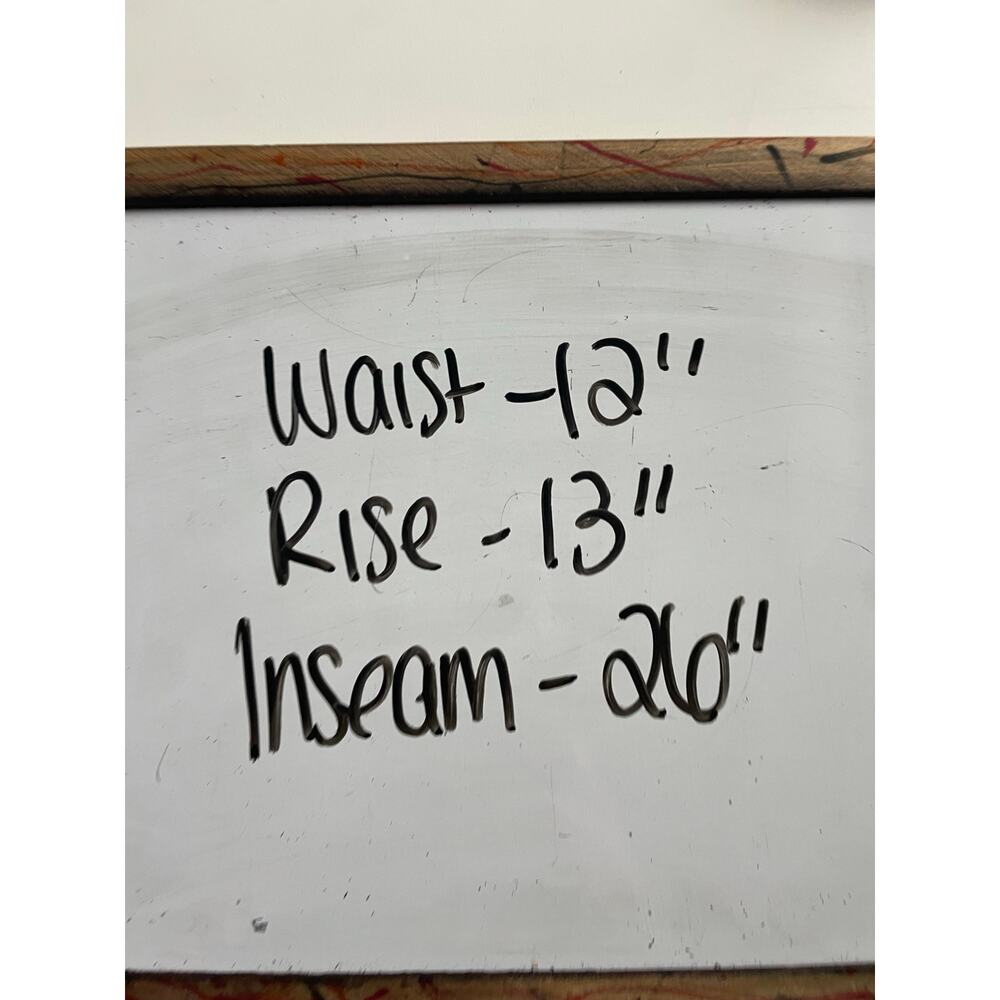 Waist - 12"
Rise - 13"
Inseam - 26"